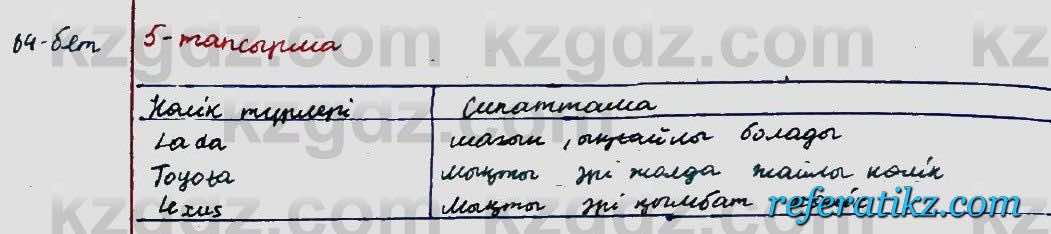 64-бет 5-тапсырма
Көлік түрлері Сипаттама
Lada шағын, ыңғайлы болады
Toyota мықты әрі жолда жайлы көлік
Lexus Мықты әрі қымбат
kzgdz.com
referatikz.com